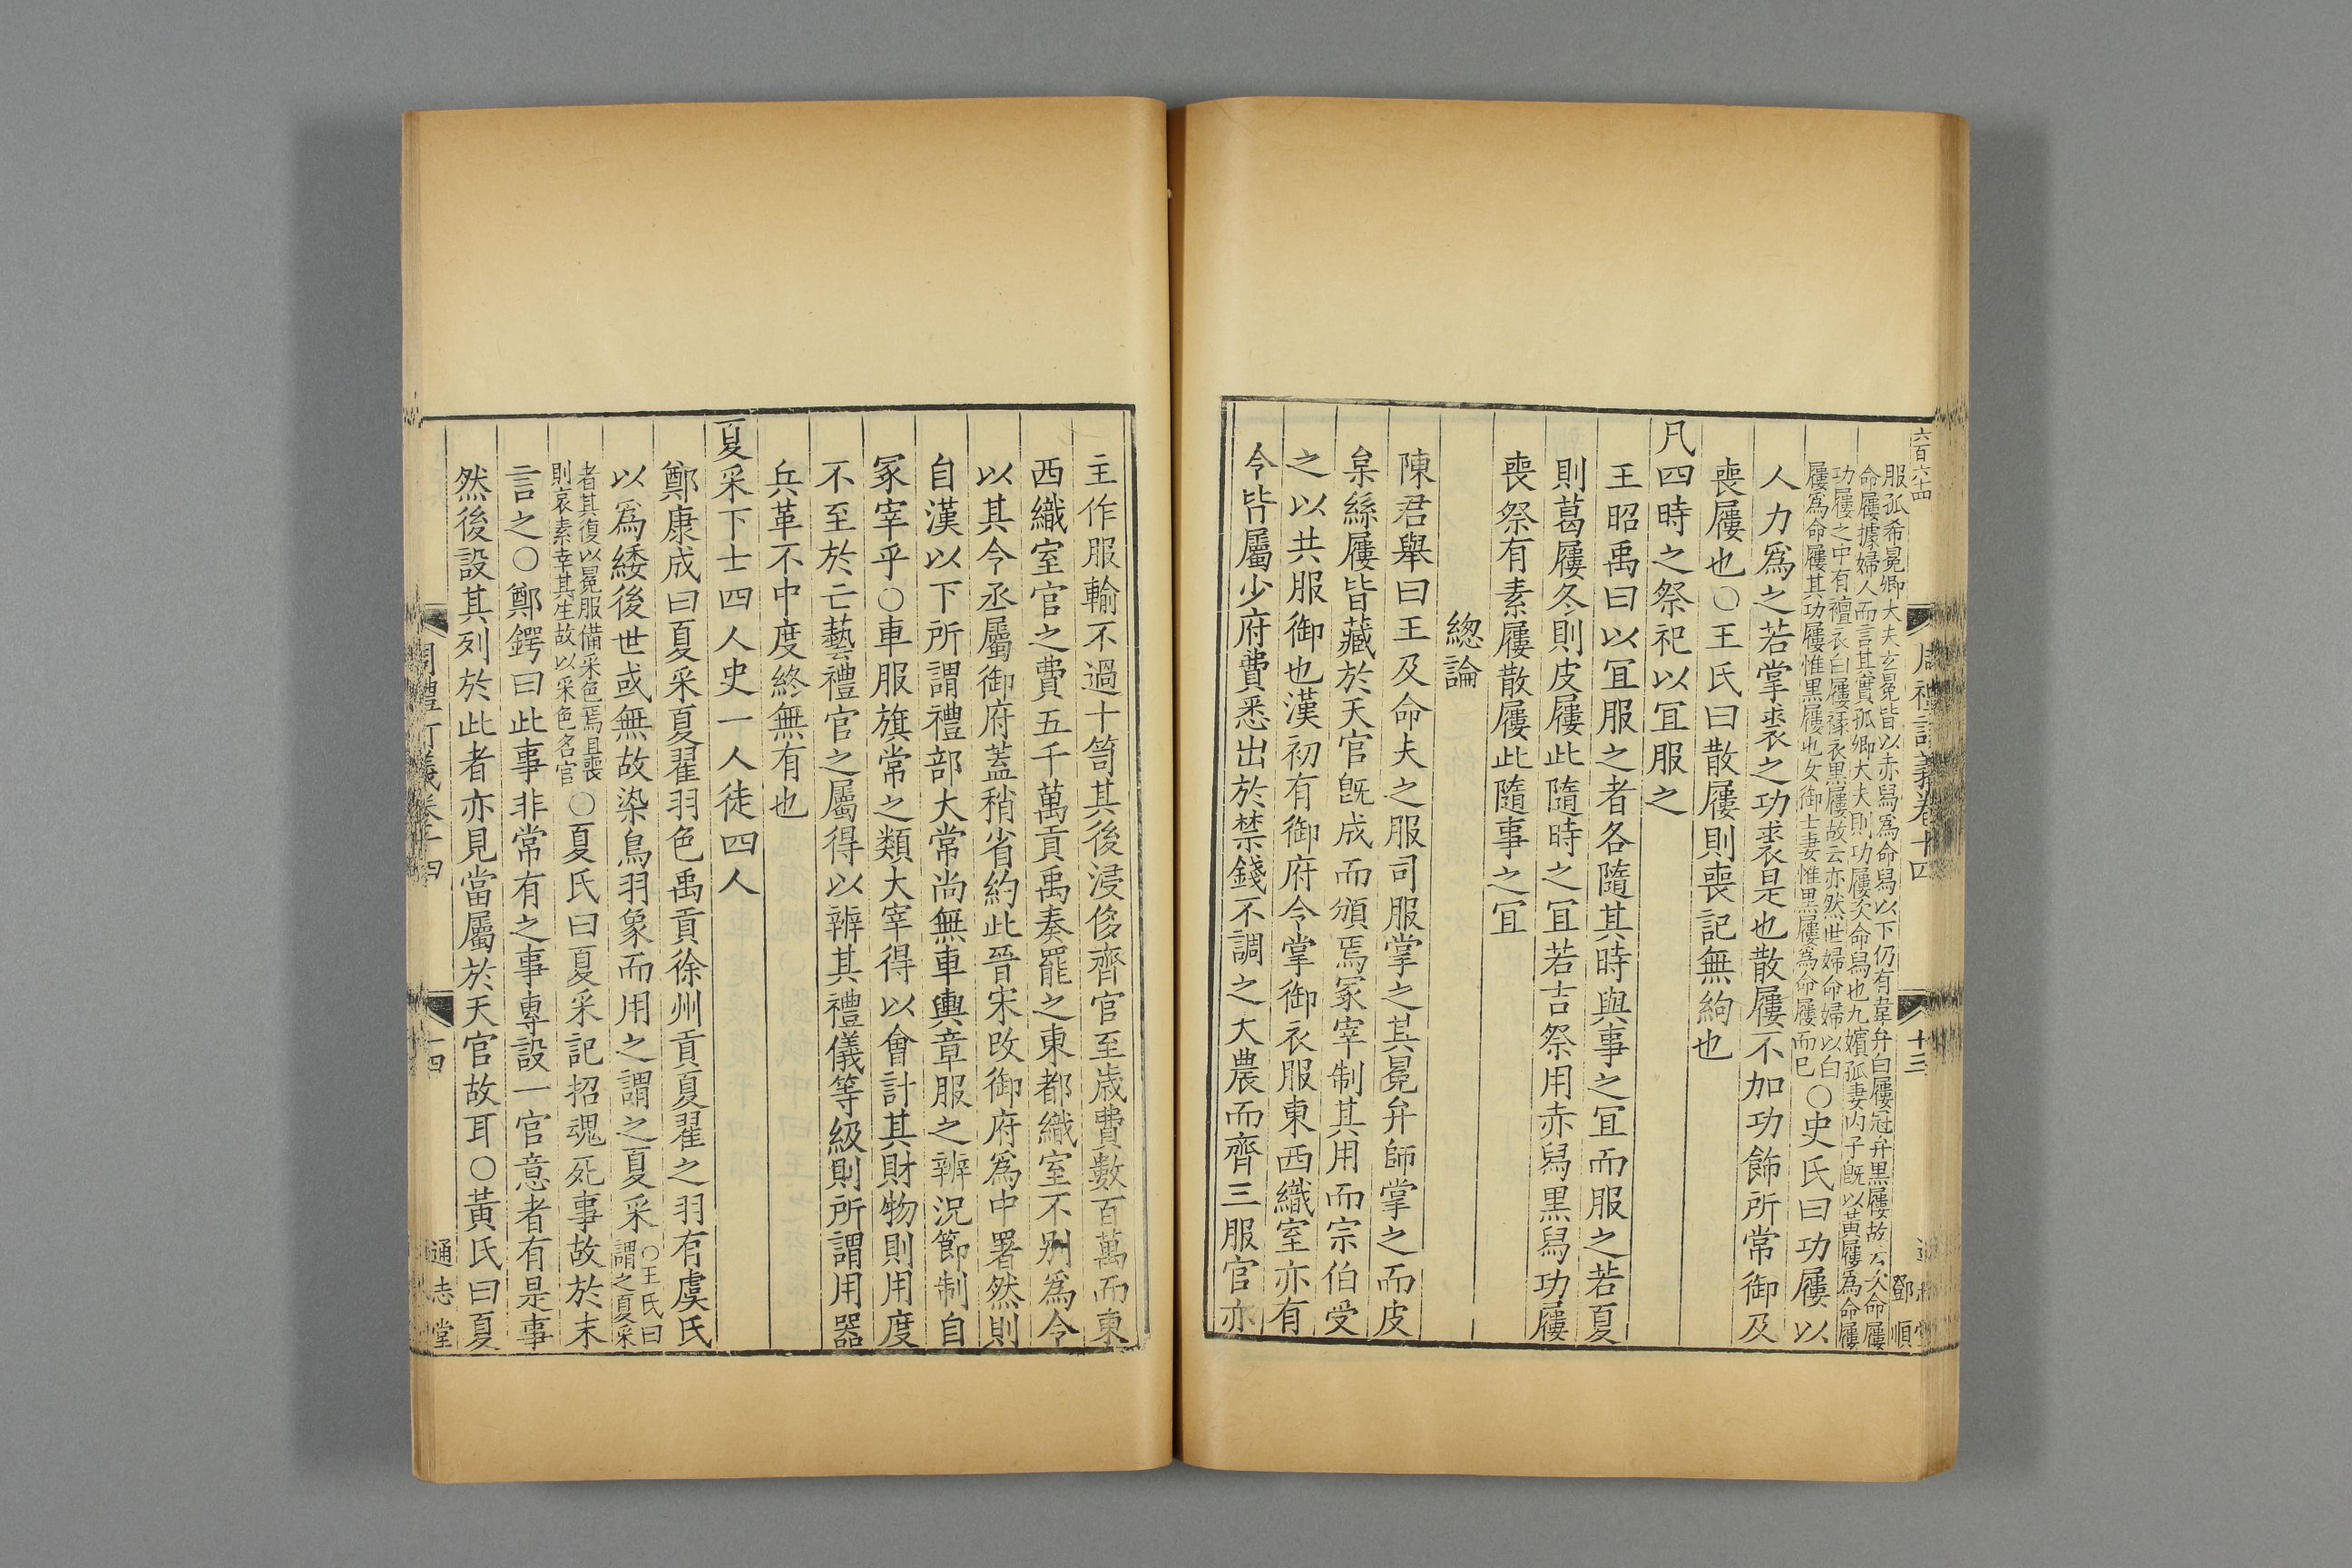 六百六十四
周禮訂義卷十四
十三
鄧順
服孤希冕卿大夫玄冕皆以赤舄為命舄以下仍有韋弁白屨冠弁黑屨故云次命屨
命屨據婦人而言其實孤卿大夫則功屨次命舄也九嬪孤妻内子既以黄屨為命屨
功屨之中有襢衣白屨褖衣黑屨故云亦然世婦命婦以白
屨為命屨其功屨惟黒屨也女御士妻惟黒屨為命屨而已
○史氏曰功屨以
人力爲之若掌裘之功裘是也散屨不加功飾所常御及
喪屨也○王氏曰散屨則喪記無絇也
凡四時之祭祀以冝服之
王昭禹曰以冝服之者各隨其時與事之冝而服之若夏
則葛屨冬則皮屨此隨時之冝若吉祭用赤舄黒舄功屨
喪祭有素屨散屨此隨事之冝
緫論
陳君舉曰王及命夫之服司服掌之其冕弁師掌之而皮
枲絲屨皆藏於天官旣成而頒焉冢宰制其用而宗伯受
之以共服御也漢初有御府令掌御衣服東西織室亦有
令皆屬少府費悉出於禁錢不調之大農而齊三服官亦
主作服輸不過十笥其後浸侈齊官至歲費數百萬而東
西織室官之費五千萬貢禹奏罷之東都織室不别爲令
以其令丞屬御府蓋稍省約此晉宋改御府爲中署然則
自漢以下所謂禮部大常尚無車輿章服之辨况節制自
冢宰乎○車服旗常之類大宰得以會計其財物則用度
不至於亡藝禮官之屬得以辨其禮儀等級則所謂用器
兵革不中度終無有也
夏采下士四人史一人徒四人
鄭康成曰夏采夏翟羽色禹貢徐州貢夏翟之羽有虞氏
以爲緌後世或無故染鳥羽象而用之謂之夏采
○王氏曰
謂之夏采
者其復以冕服備采色焉且喪
則哀素幸其生故以采色名官
○夏氏曰夏采記招魂死事故於末
言之○鄭鍔曰此事非常有之事專設一官意者有是事
然後設其列於此者亦見當屬於天官故耳○黃氏曰夏
周禮訂義卷十四
十四
通志堂